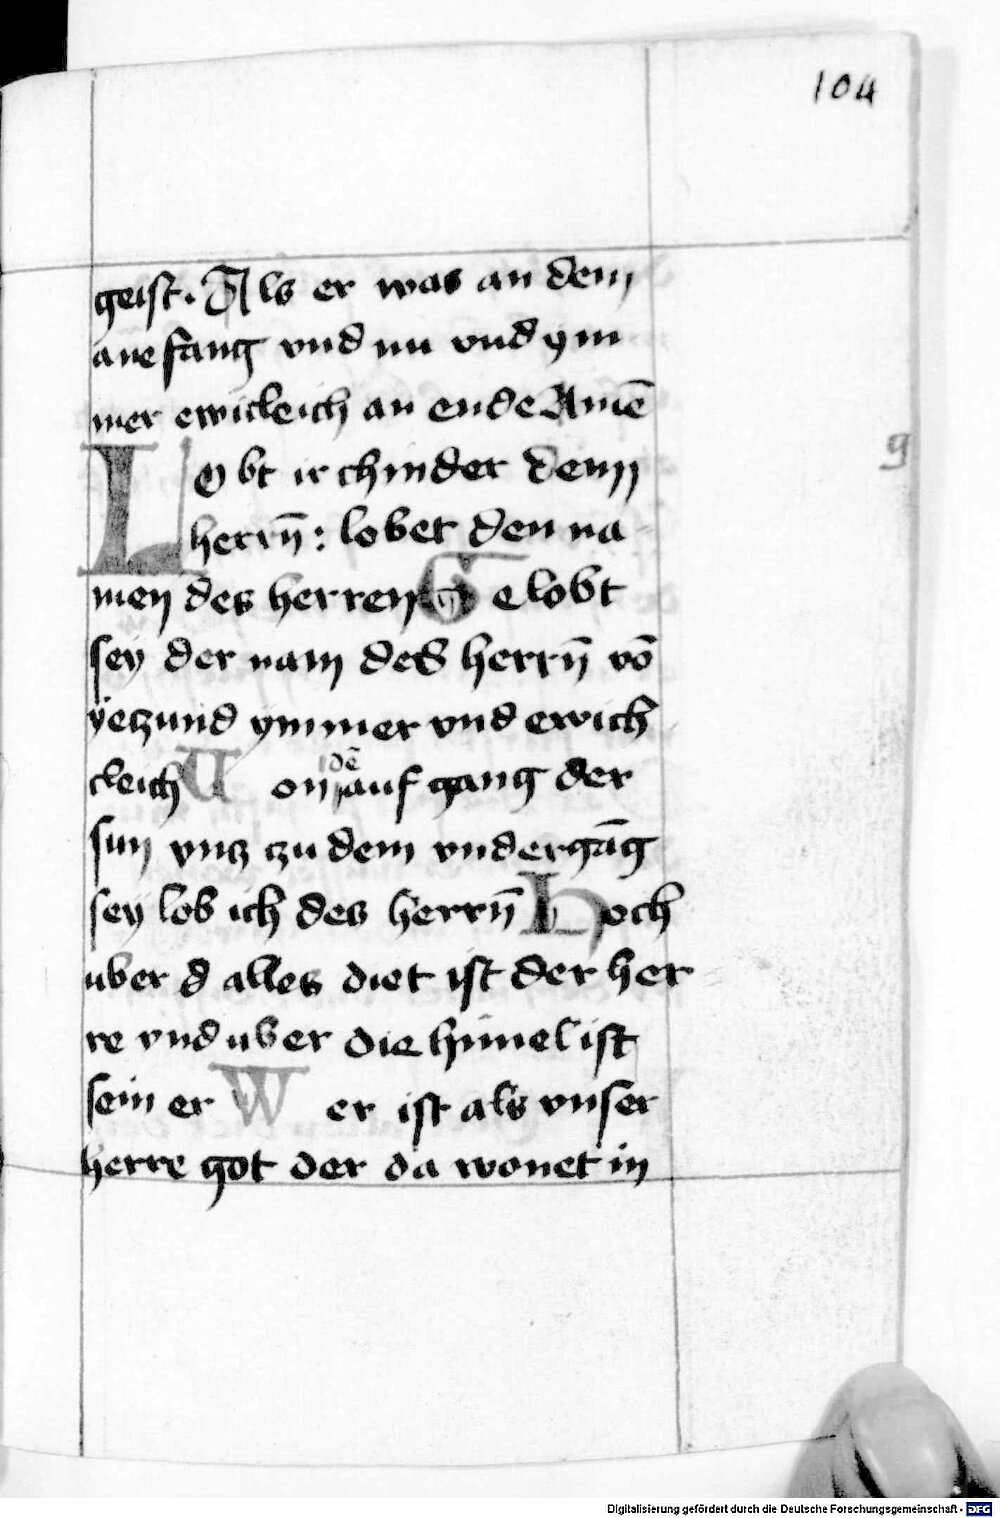 104
geist. Als er was an dem
anefang vnd nu vnd ym
mer ewicleich an ende Amē
Lobt ir chinder dem
herrn̄: lobet den na
men des herren Gelobt
sey der nam des herrn̄ vō
yetzund ymmer vnd ewich
cleich Von dē aufgang der
sun vntz tzu dem vndergāg
sey lob ich des herrn̄ Hoch
uber d alles diet ist der her
re vnd uber die himel ist
sein er Wer ist als vnser
herre got der da wonet in
g
Digitalisierung gefördert durch die Deutsche Forschungsgemeinschaft - DFG